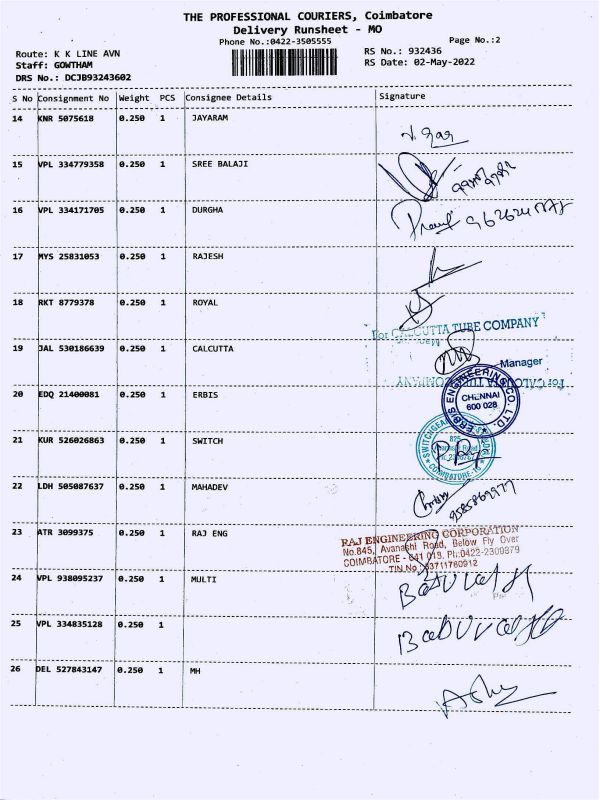 THE PROFESSIONAL COURIERS, Coimbatore
Delivery Runsheet - MO
Phone No.:0422-3505555 Page No.:2
Route: K K LINE AVN RS No.: 932436
Staff: GOWTHAM RS Date: 02-May-2022
DRS No.: DCJB93243602
S No Consignment No Weight PCS Consignee Details Signature
14 KNR 5075618 0.250 1 JAYARAM
15 VPL 334779358 0.250 1 SREE BALAJI
16 VPL 334171705 0.250 1 DURGHA
17 MYS 25831053 0.250 1 RAJESH
18 RKT 8779378 0.250 1 ROYAL
For CALCUTTA TUBE COMPANY
19 JAL 530186639 0.250 1 CALCUTTA
Manager
20 EDQ 21400081 0.250 1 ERBIS
ERBIS ENGINEERING CO. LTD.
CHENNAI
600 028
21 KUR 526026863 0.250 1 SWITCH
COIMBATORE-18
22 LDH 505087637 0.250 1 MAHADEV
9585869977
23 ATR 3099375 0.250 1 RAJ ENG
RAJ ENGINEERING CORPORATION
No.845, Avanashi Road, Below Fly Over
COIMBATORE - 641 018. Ph:0422-2309879
TIN No. 33711760912
24 VPL 938095237 0.250 1 MULTI
25 VPL 334835128 0.250 1
26 DEL 527843147 0.250 1 MH